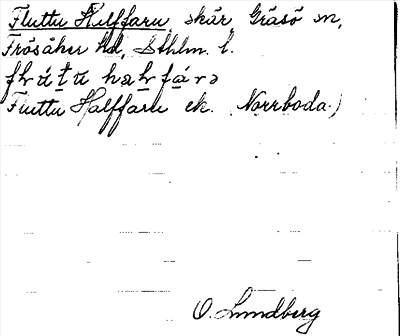 Fluttu Halffaru, skär Gräsö sn,
Frösåker hd, Sthlm. l.
Fluttu Halffaru ek. Norrboda.)
O. Lundberg